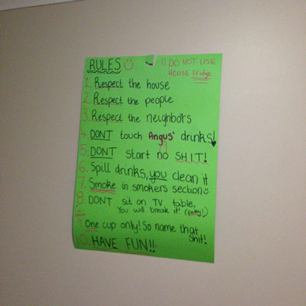 RULES ☺
!! DO NOT USE
HOUSE fridge
1. Respect the house
2. Respect the people
3. Respect the neighbors
4. DONT touch Angus' drinks!
5. DONT start no SHIT!
6. Spill drinks, you clean it
7. Smoke in smokers section
8. DONT sit on TV table,
You will break it!
9. One cup only! So name that
shit!
10. HAVE FUN!!